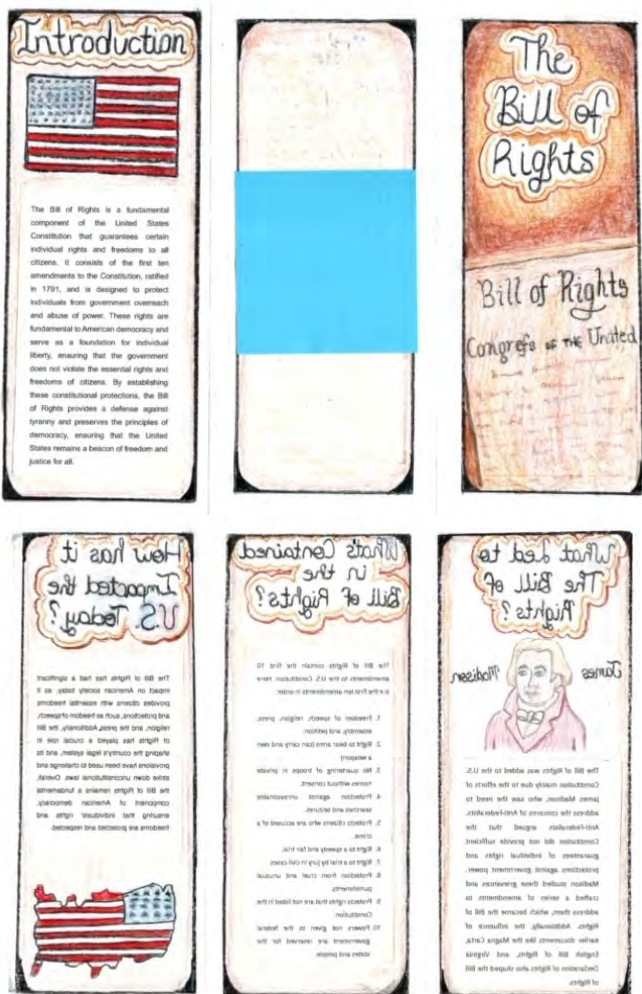 Introduction
The Bill of Rights is a fundamental
component of the United States
Constitution that guarantees certain
individual rights and freedoms to all
citizens. It consists of the first ten
amendments to the Constitution, ratified
in 1791, and is designed to protect
individuals from government overreach
and abuse of power. These rights are
fundamental to American democracy and
serve as a foundation for individual
liberty, ensuring that the government
does not violate the essential rights and
freedoms of citizens. By establishing
these constitutional protections, the Bill
of Rights provides a defense against
tyranny and preserves the principles of
democracy, ensuring that the United
States remains a beacon of freedom and
justice for all.
The
Bill of
Rights
Bill of Rights
Congrefs OF THE United
How has it
Impacted the
U.S. Today?
The Bill of Rights has had a significant
impact on American society today, as it
provides citizens with essential freedoms
and protections, such as freedom of speech,
religion, and the press. Additionally, the Bill
of Rights has played a crucial role in
shaping the country's legal system, and its
provisions have been used to challenge and
strike down unconstitutional laws. Overall,
the Bill of Rights remains a fundamental
component of American democracy,
ensuring that individuals' rights and
freedoms are protected and respected.
What's Contained
in the
Bill of Rights?
The Bill of Rights contain the first 10
amendments to the U.S. Constitution. Here
are the first ten amendments in order.
1. Freedom of speech, religion, press,
assembly, and petition.
2. Right to bear arms (can carry and own
a weapon)
3. No quartering of troops in private
homes without consent.
4. Protection against unreasonable
searches and seizures.
5. Protects citizens who are accused of a
crime.
6. Right to a speedy and fair trial.
7. Right to a trial by jury in civil cases.
8. Protection from cruel and unusual
punishments.
9. Protects rights that are not listed in the
Constitution.
10. Powers not given to the federal
government are reserved for the
states and people.
What Led to
The Bill of
Rights?
James Madison
The Bill of Rights was added to the U.S.
Constitution mainly due to the efforts of
James Madison, who saw the need to
address the concerns of Anti-Federalists.
Anti-Federalists argued that the
Constitution did not provide sufficient
guarantees of individual rights and
protections against government power.
Madison studied these grievances and
crafted a series of amendments to
address them, which became the Bill of
Rights. Additionally, the influence of
earlier documents like the Magna Carta,
English Bill of Rights, and Virginia
Declaration of Rights also shaped the Bill
of Rights.